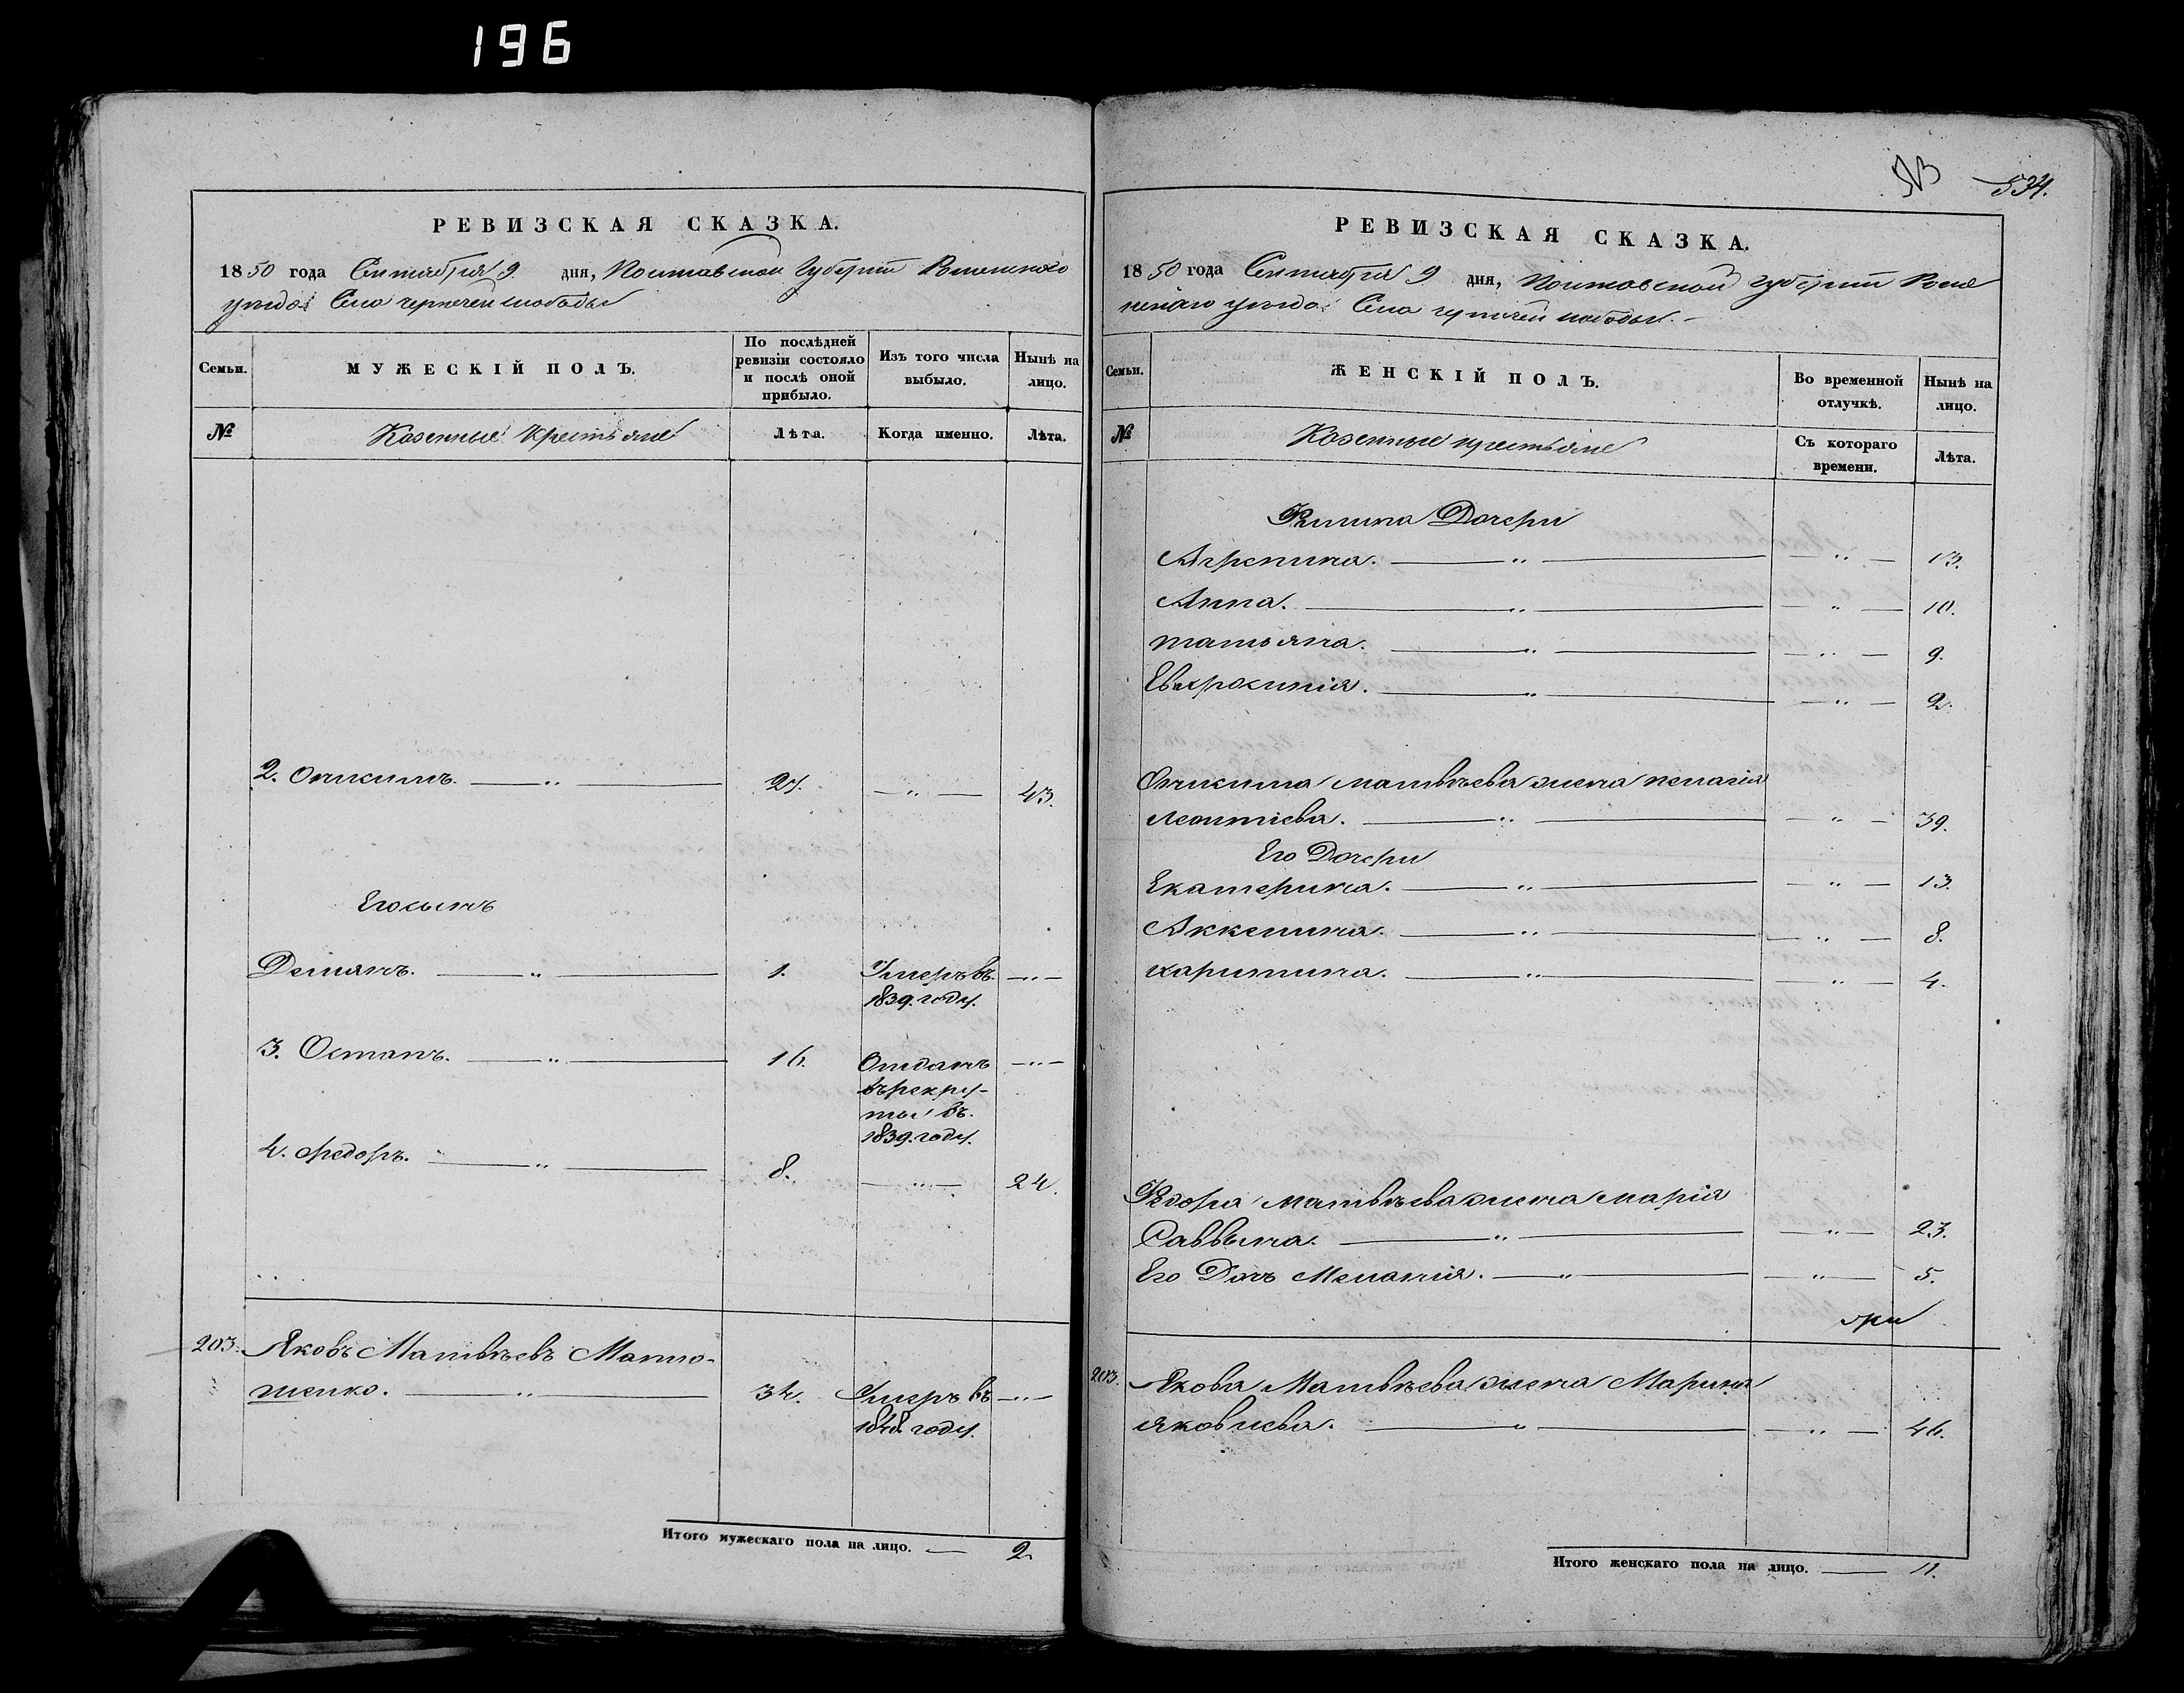 196
РЕВИЗСКАЯ СКАЗКА.
1850 года Сентября 9 дня, Полтавской Губерніи Роменского
уезда: Села чернечей слободы
Семьи.
МУЖЕСКІЙ ПОЛЪ.
По послѣдней ревизіи состояло и послѣ оной прибыло.
Изъ того числа выбыло.
Нынѣ на лицо.
№
Казенные Крестьяне
Лѣта.
Когда именно.
Лѣта.
2. Онисимъ. — " — 27. — " — 43.
Его сынъ
Демянъ. — " — 1. Умеръ въ — " —
1839. году.
3. Остапъ. — " — 16. Отданъ — " —
въ рекру-
ты въ
1839. году.
4. Федоръ. — " — 8. — " — 24.
203. Яковъ Матвѣевъ Матю-
шенко. — " — 34. Умеръ въ — " —
1848 году.
Итого мужескаго пола на лицо. — 2.
534.
РЕВИЗСКАЯ СКАЗКА.
1850 года Сентября 9 дня, Полтавской губерніи Роме
нскаго уезда: Села чернечей слободы. –
Семьи.
ЖЕНСКІЙ ПОЛЪ.
Во временной отлучкѣ.
Нынѣ на лицо.
№
Казенные крестьяне
Съ котораго времени.
Лѣта.
Дочери
Агрепина. — " — — " — 13.
Анна. — " — — " — 10.
татьяна. — " — — " — 9.
Евфросинія. — " — — " — 2.
Онисима Матвѣева жена пелагія
леонтіева. — " — — " — 39.
Его Дочери
Екатерина. — " — — " — 13.
Аксенина. — " — — " — 8.
харитина. — " — — " — 4.
Федора Матвѣева жена марія
Саввина. — " — — " — 23.
Его Дочь Меланія. — " — — " — 5.
203. Якова Матвѣева жена Марина
яковлева. — " — — " — 46.
Итого женскаго пола на лицо. — 11.